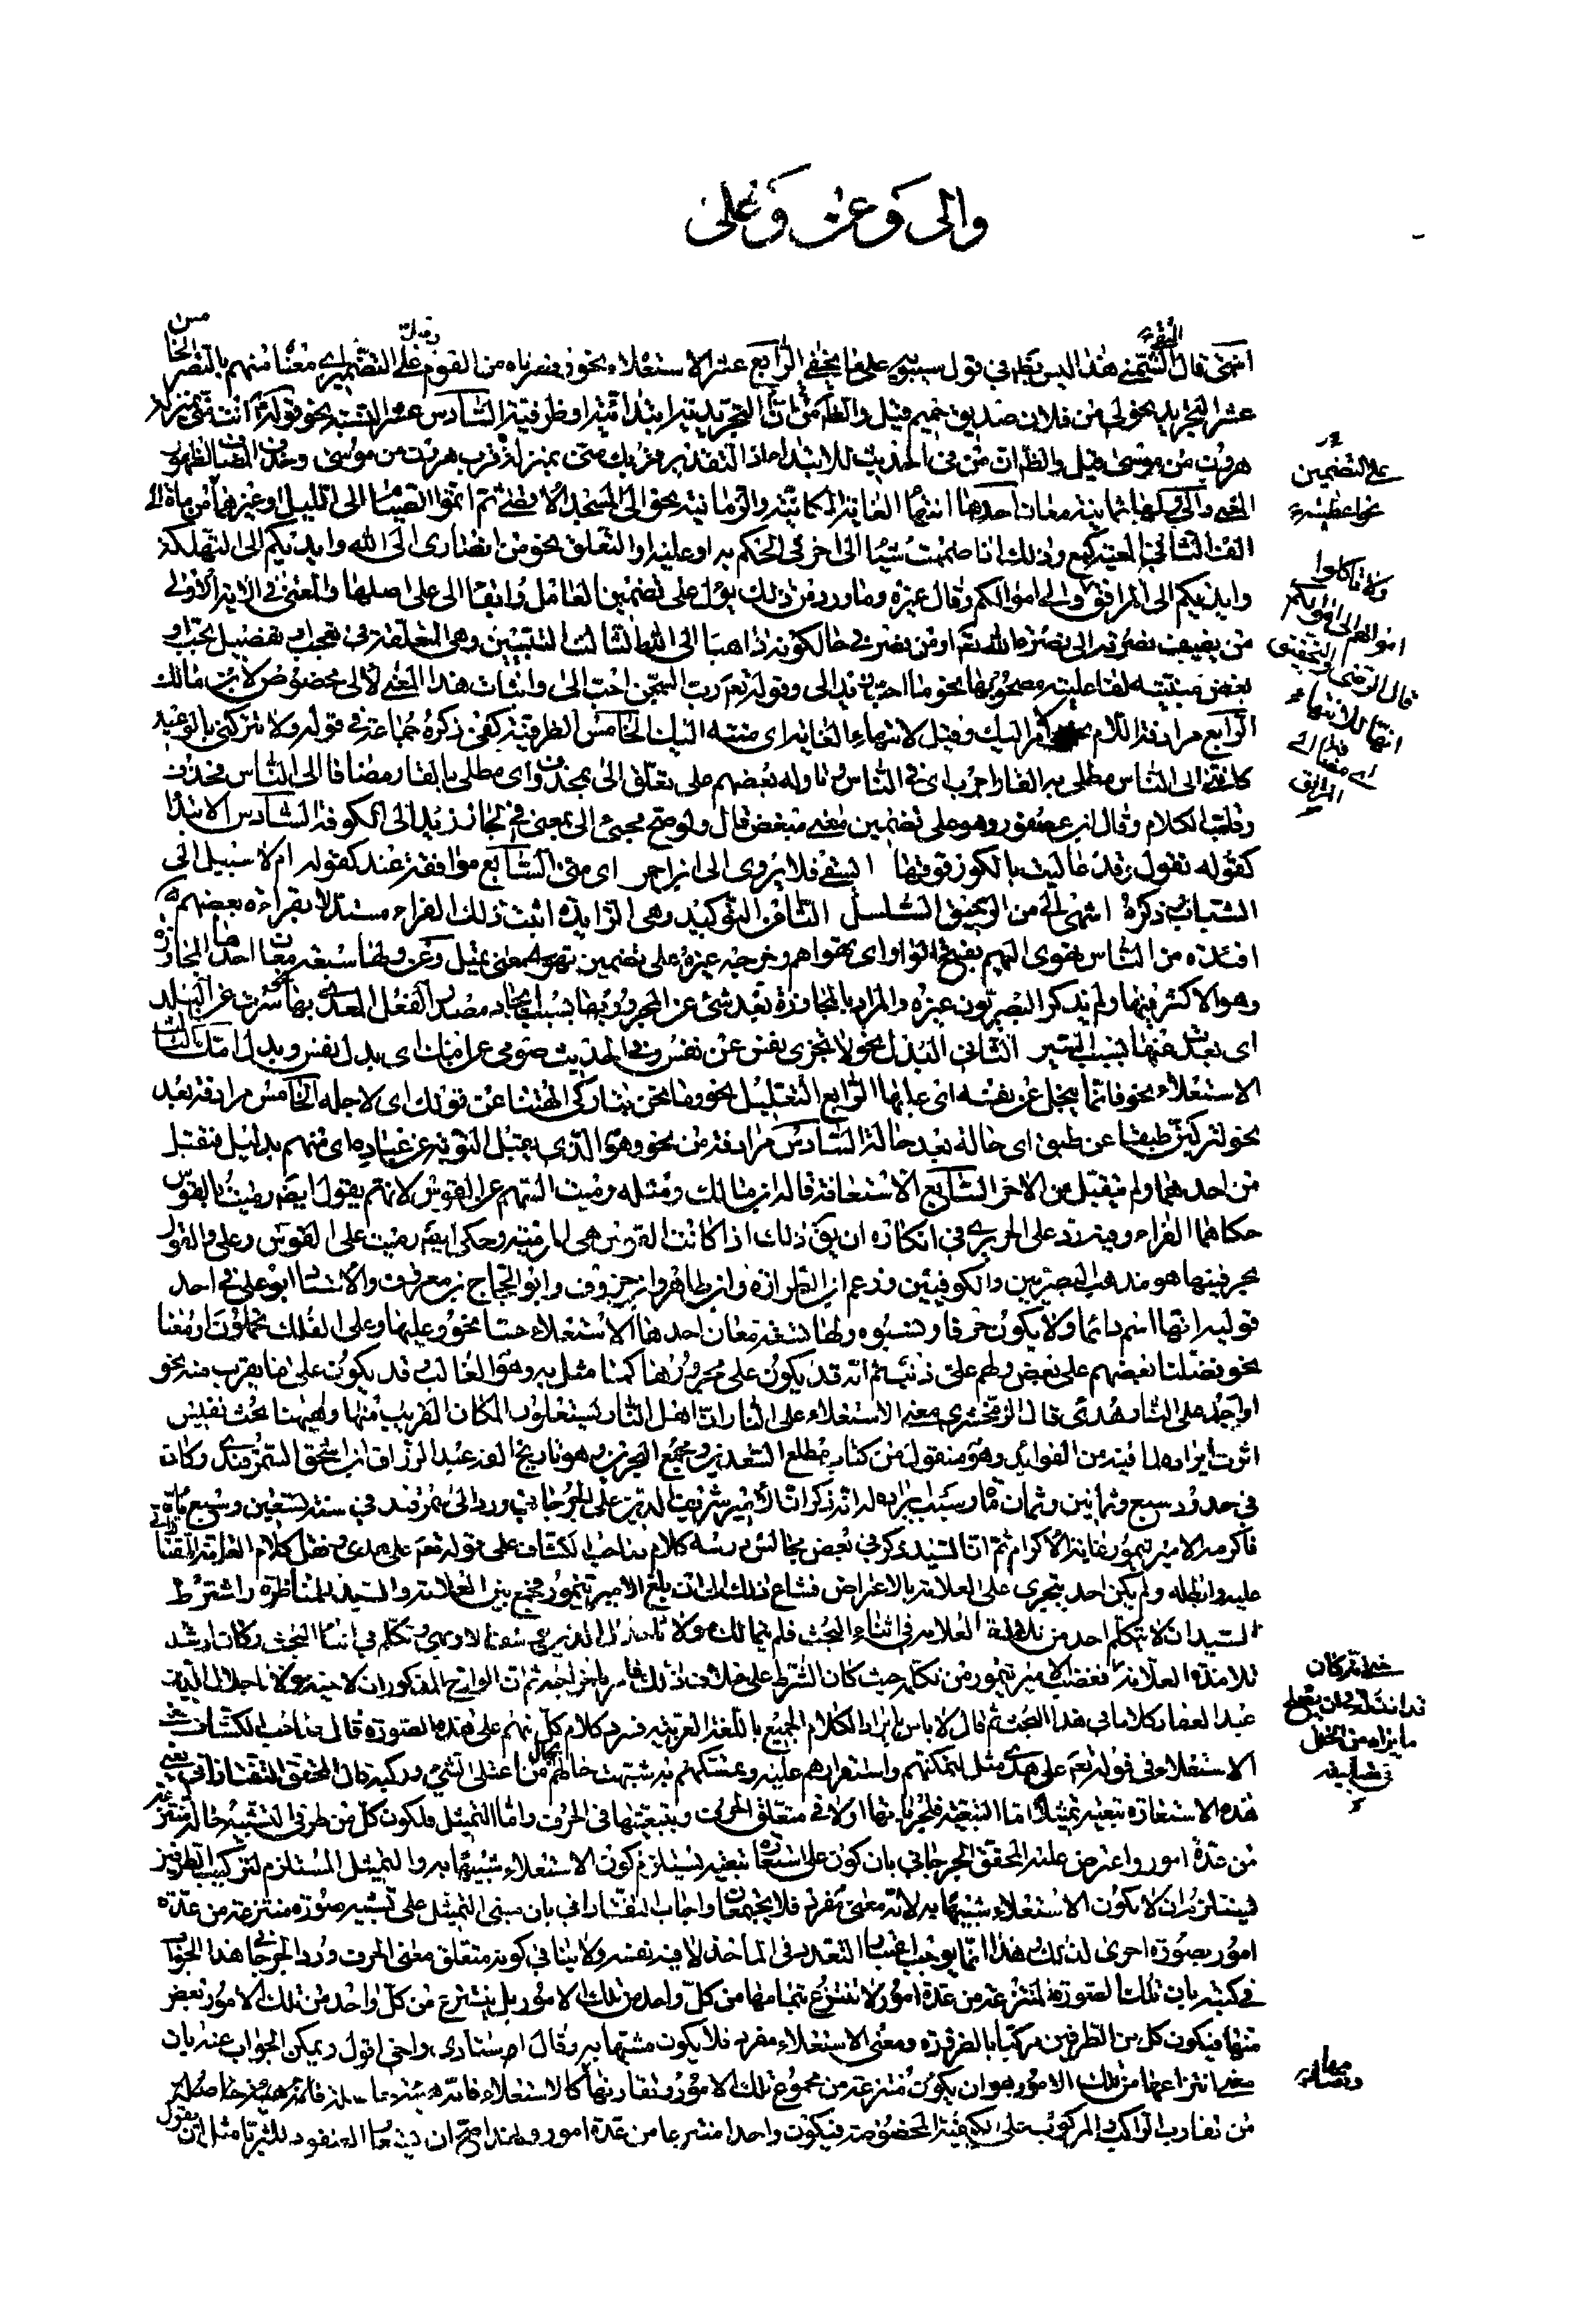 والى وعن وعلى
انتهى قال الشمنى هذا ليس بظ فى قول سيبويه على ما يخفى الرابع عشر الاستعلاء نحو ونصرناه من القوم على التضمين اى معنا منهم بالنصر الخامس
عشر التجريد نحو لى من فلان صديق حميم قيل والظ ان التجريدية ابتدائية او ظرفية السادس عشر النسبة نحو قوله انت منى بمنزلة
هرون من موسى قيل والظ ان من فى الحديث للابتداء اذ التقدير قربك منى بمنزلة قرب هرون من موسى وحذف المضاف لظهور
المعنى والى ولها ثمانية معان احدها انتهاء الغاية المكانية والزمانية نحو الى المسجد الاقصى ثم اتموا الصيام الى الليل وغيرهما
الثانى المعية كمع وذلك اذا ضممت شيئا الى اخر فى الحكم به او عليه او التعلق نحو من انصارى الى الله وايديكم الى التهلكة
وايديكم الى المرافق والى اموالكم وقال غيره وما ورد من ذلك يؤل على تضمين العامل وابقاء الى على اصلها والمعنى فى الاية الاولى
من يضيف نصرته الى نصرة الله تع او من ينصرنى حالكونه ذاهبا الى الله الثالث التبيين وهى المتعلقة فى تعجب او تفضيل بحب او
بغض مبينة لفاعلية مصحوبها نحو ما احب زيد الى وقوله تع رب السجن احب الى واثبات هذا المعنى لالى مخصوص لابن مالك
الرابع مرادفة اللام نحو الامر اليك وقيل لانتهاء الغاية اى منته اليك الخامس الظرفية كفى ذكره جماعة فى قوله ولا تتركنى بالوعيد
كاننى الى الناس مطلى به القار اجرب اى فى الناس واوله بعضهم على تعلق الى بمحذوف اى مطلى بالقار مضافا الى الناس فحذف
وقلب الكلام وقال ابن عصفور وهو على تضمين معنى مبغض قال ولو صح مجيئ الى بمعنى فى لجاز زيد الى الكوفة السادس الابتداء
كقوله تقول وقد عاليت بالكور فوقها ايسقى فلا يروى الى ابن احمر اى منى السابع موافقة عند كقوله ام لا سبيل الى
الشباب وذكره اشهى الى من الرحيق السلسل الثامن التوكيد وهى الزايدة اثبت ذلك الفراء مستدلا بقراءة بعضهم
افئدة من الناس تهوى اليهم بفتح الواو اى تهواهم وخرجه غيره على تضمين تهوى معنى تميل وعن ولها سبعة معان احدها المجاوزة
وهو الاكثر فيها ولم يذكر البصريون غيره والمراد بالمجاوزة بعد شئ عن المجرور بها بسبب ايجاد مصدر الفعل المعدى بها نحو سرت عن البلد
اى بعدت عنها بسبب السير الثانى البدل نحو لا تجزى نفس عن نفس وفى الحديث صومى عن امك اى بدل نفس وبدل امك الثالث
الاستعلاء نحو فانما يبخل عن نفسه اى عليها الرابع التعليل نحو وما نحن بتاركى الهتنا عن قولك اى لاجله الخامس مرادفة بعد
نحو لتركبن طبقا عن طبق اى حالة بعد حالة السادس مرادفة من نحو وهو الذى يقبل التوبة عن عباده اى منهم بدليل فتقبل
من احدهما ولم يتقبل من الاخر السابع الاستعانة قاله ابن مالك ومثله رميت السهم عن القوس لانهم يقول ايض رميت بالقوس
حكاهما الفراء وفيه رد على الحريرى فى انكاره ان يق ذلك الا اذا كانت القوس هى المرمية وحكى ايض رميت على القوس وعلى والقول
بحرفيتها هو مذهب البصريين والكوفيين وزعم ابن الطراوة وابن طاهر وابن خروف وابو الحجاج بن معزوف والاستاد ابو على فى احد
قوليه انها اسم دائما ولا يكون حرفا ونسبوه ولها تسعة معان احدها الاستعلاء حسا نحو وعليها وعلى الفلك تحملون او معنا
نحو فضلنا بعضهم على بعض ولهم على ذنب ثم انه قد يكون على مجرورها كما مثل به وهو الغالب وقد يكون على ما يقرب منه نحو
او اجد على النار هدى قال الزمخشرى معنى الاستعلاء على النار ان اهل النار يستعلون المكان القريب منها وههنا بحث نفيس
اثرت ايراده لما فيه من الفوائد وهو منقول من كتاب مطلع السعدين ومجمع البحرين وهو تاريخ الفه عبد الرزاق بن اسحق السمرقندى وكان
فى حدود سبع وثمانين وثمان مأة وسبب ايراده له انه ذكر ان الامير شريف الدين على الجرجانى ورد الى سمرقند فى سنة تسعين وسبع مأة
فاكرمه الامير تيمور غاية الاكرام ثم ان السيد ذكر فى بعض مجالس درسه كلام صاحب الكشاف على قوله تع على هدى ونقل كلام العلامة التفتازانى
عليه وابطله ولم يكن احد يتجرى على العلامة بالاعتراض فشاع ذلك الى ان بلغ الامير تيمور فجمع بين العلامة والسيد للمناظرة واشترط
السيد ان لا يتكلم احد من تلامذة العلامة فى اثناء البحث فلم يتمالك مولانا تكلم فى اثناء البحث وكان ارشد
تلامذة العلامة فغضب الامير تيمور من تكلمه حيث كان الشرط على خلاف ذلك فامر باخراجه ثم ان المورخ المذكور ان لاخيه مولانا جلال الدين
عبد الغفار كلاما فى هذا البحث ثم قال لا باس بايراد الكلام الجميع باللغة العربية فسرد كلام كل منهم على هذه الصورة قال صاحب الكشاف معنى
الاستعلاء فى قوله تع على هدى مثل لتمكنهم واستقرارهم عليه وتمسكهم به شبهت حالهم بحال من اعتلى الشئ وركبه قال المحقق التفتازانى يعنى
هذه الاستعارة تبعية تمثيلا اما التبعية فلجريانها اولا فى متعلق الحرف وتبعيتها فى الحرف واما التمثيل فلكون كل من طرفى التشبيه حالة منتزعة
من عدة امور واعترض عليه المحقق الجرجانى بان كون على استعارة تبعية يستلزم كون الاستعلاء مشبها به والتمثيل المستلزم لتركيب الطرفين
فيستلزم ان لا يكون الاستعلاء مشبها به لانه معنى مفرد فلا يجتمعان واجاب التفتازانى بان مبنى التمثيل على تشبيه صورة منتزعة من عدة
امور بصورة اخرى كذلك وهذا انما يوجب اعتبار التعدد فى المأخذ لا فيه نفسه ولا ينافى كونه متعلق معنى الحرف ورد الجرجانى هذا الجواب
فى كتبه بان تلك الصورة المنتزعة من عدة امور لا تنتزع بتمامها من كل واحد من تلك الامور بل ينتزع من كل واحد من تلك الامور بعض
منها فيكون كل من الطرفين مركبا بالضرورة ومعنى الاستعلاء مفرد فلا يكون مشبها به وقال استادى واخى اقول ويمكن الجواب عنه بان
معنى انتزاعها من تلك الامور هو ان يكون منتزعة من مجموع تلك الامور وتقاربها كالاستعلاء فانه
من تقارب الراكب والمركوب على الكيفية المخصوصة فيكون واحدا منتزعا من عدة امور ولهذا صح ان يشبها العنقود للثريا مثلا ان يقول
على التضمين
نحو
ولا تاكلوا
اموالهم الى اموالكم
قال الرضى والتحقيق
انها للانتهاء
اى مضافة الى
المرافق